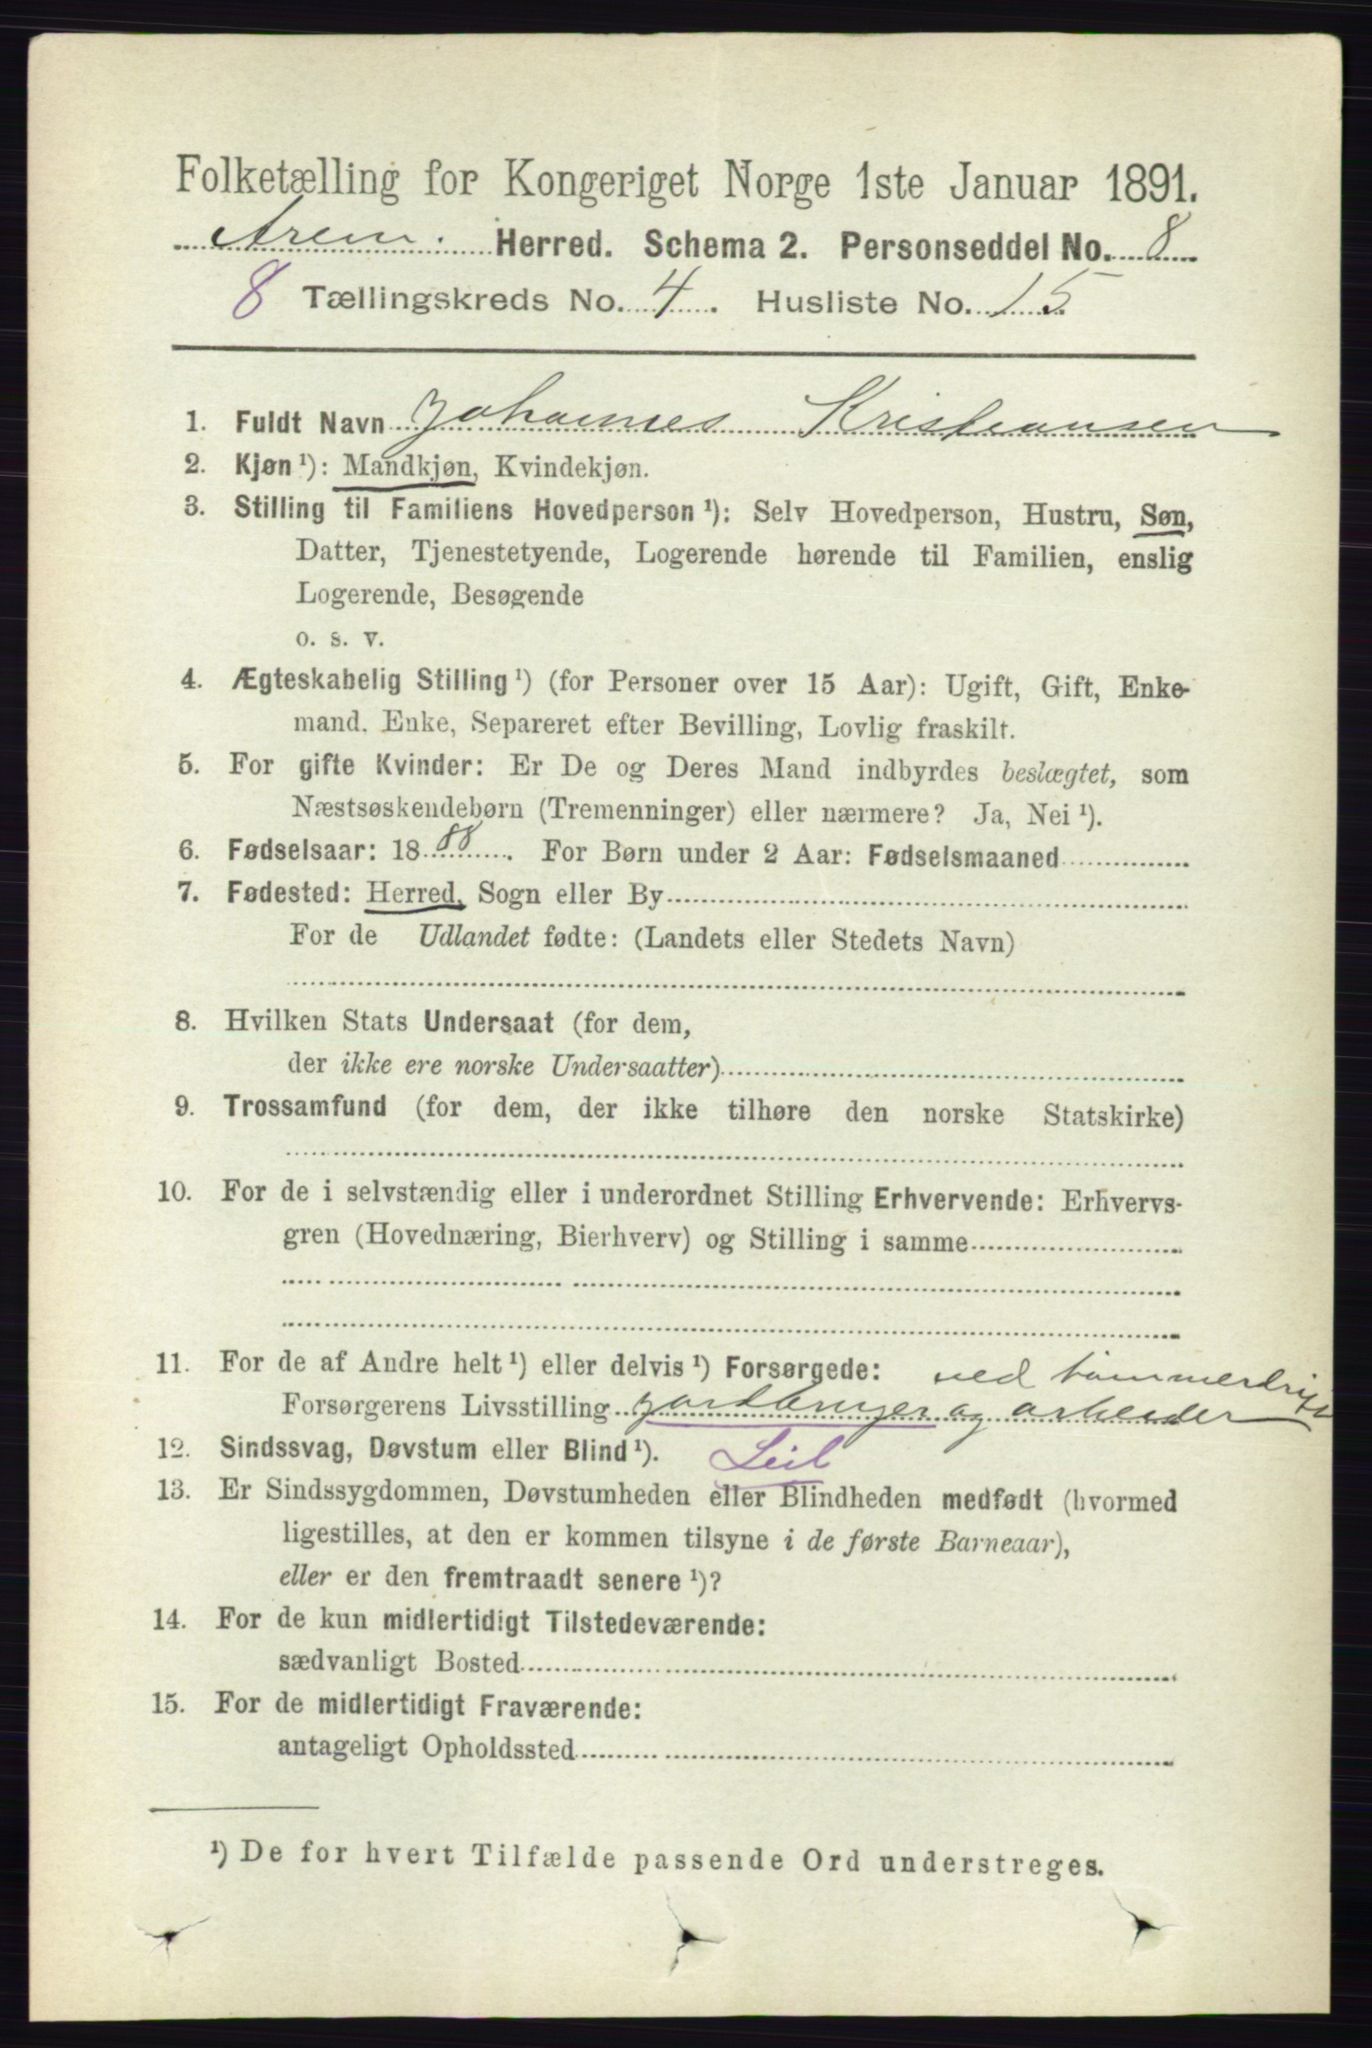 Folketælling for Kongeriget Norge 1ste Januar 1891.
Arem. Herred. Schema 2. Personseddel No. 8
8 Tællingskreds No. 4. Husliste No. 15
1. Fuldt Navn Johannes Kristiansen
2. Kjøn ¹): Mandkjøn, Kvindekjøn.
3. Stilling til Familiens Hovedperson ¹): Selv Hovedperson, Hustru, Søn,
Datter, Tjenestetyende, Logerende hørende til Familien, enslig
Logerende, Besøgende
o. s. v.
4. Ægteskabelig Stilling ¹) (for Personer over 15 Aar): Ugift, Gift, Enke-
mand, Enke, Separeret efter Bevilling, Lovlig fraskilt.
5. For gifte Kvinder: Er De og Deres Mand indbyrdes beslægtet, som
Næstsøskendebørn (Tremenninger) eller nærmere? Ja, Nei ¹).
6. Fødselsaar: 1888. For Børn under 2 Aar: Fødselsmaaned
7. Fødested: Herred, Sogn eller By
For de Udlandet fødte: (Landets eller Stedets Navn)
8. Hvilken Stats Undersaat (for dem,
der ikke ere norske Undersaatter)
9. Trossamfund (for dem, der ikke tilhøre den norske Statskirke)
10. For de i selvstændig eller i underordnet Stilling Erhvervende: Erhvervs-
gren (Hovednæring, Bierhverv) og Stilling i samme
11. For de af Andre helt ¹) eller delvis ¹) Forsørgede: ved tømmerdrift
Forsørgerens Livsstilling jordbruger og arbeider
12. Sindssvag, Døvstum eller Blind ¹). Leil
13. Er Sindssygdommen, Døvstumheden eller Blindheden medfødt (hvormed
ligestilles, at den er kommen tilsyne i de første Barneaar),
eller er den fremtraadt senere ¹)?
14. For de kun midlertidigt Tilstedeværende:
sædvanligt Bosted
15. For de midlertidigt Fraværende:
antageligt Opholdssted
¹) De for hvert Tilfælde passende Ord understreges.